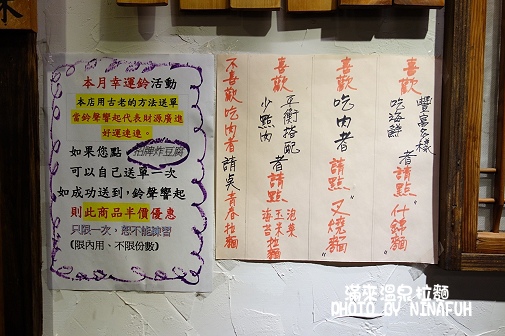 本月幸運鈴活動
本店用古老的方法送單
當鈴聲響起代表財源廣進
好運連連。
如果您點 招牌炸豆腐
可以自己送單一次
如成功送到,鈴聲響起
則此商品半價優惠
只限一次,恕不能練習
(限內用、不限份數)
喜歡豐富多樣吃海鮮者請點"什錦麵"
喜歡吃肉者請點"叉燒麵"
喜歡平衡搭配少點肉者請點泡菜玉米海苔拉麵
不喜歡吃肉者請點青春拉麵
滿來溫泉拉麵
PHOTO BY NINAFUH